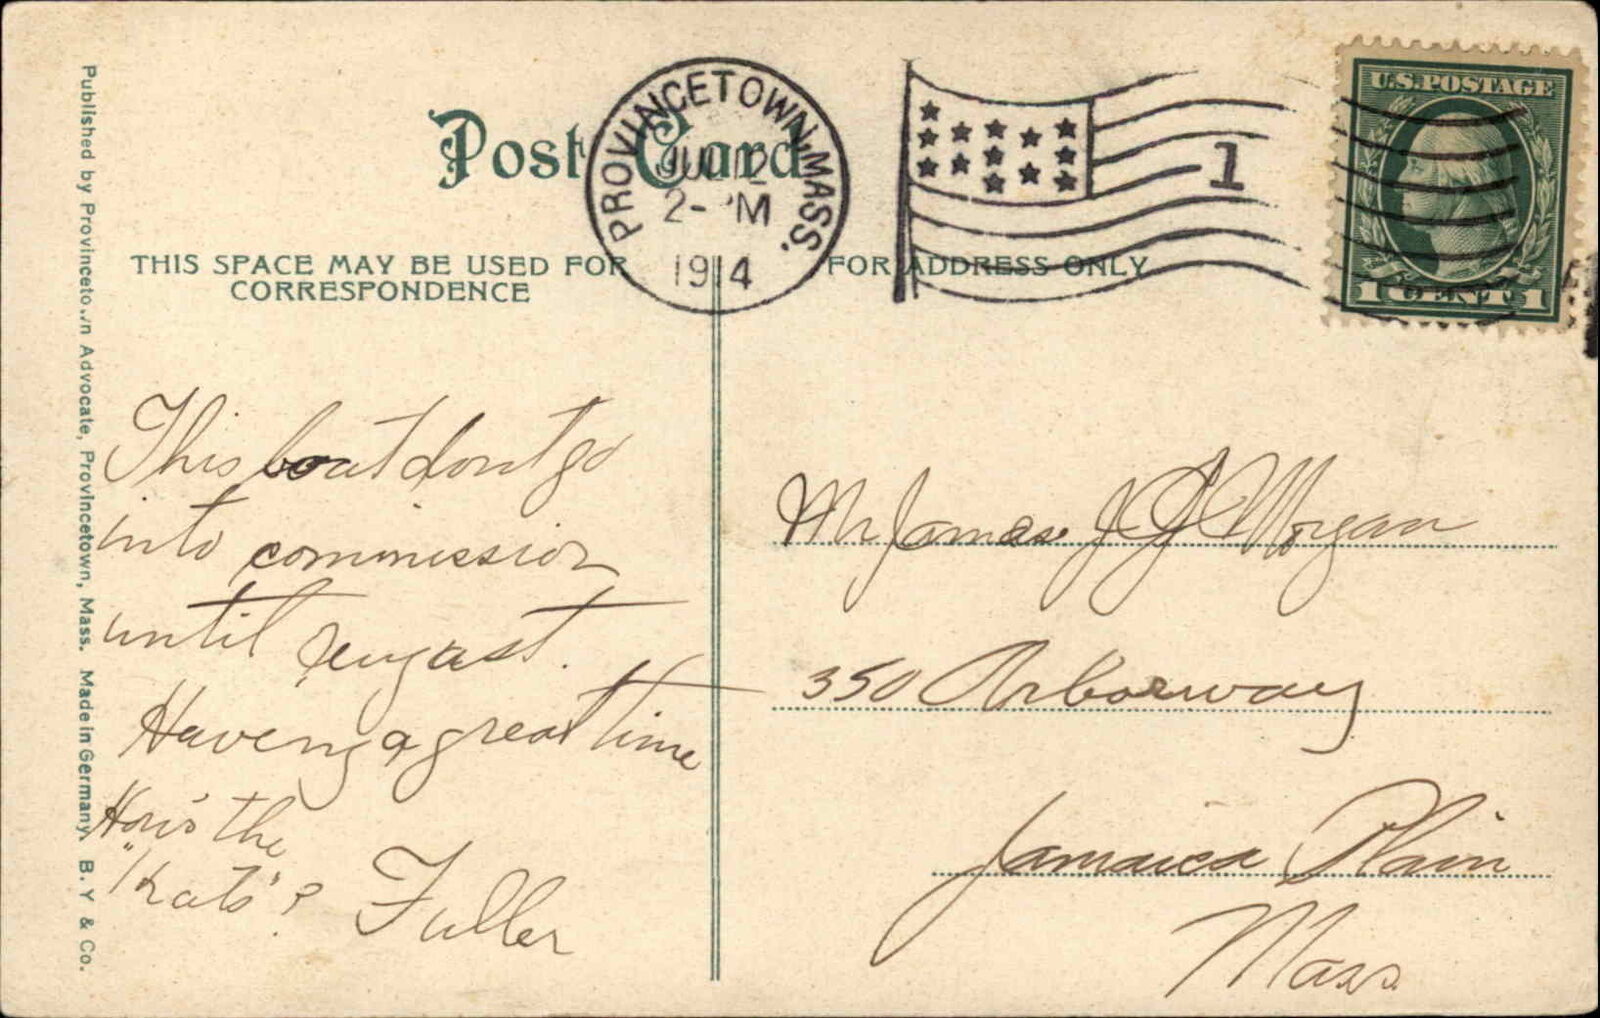 Post Card
PROVINCETOWN, MASS.
JUL 12
2- PM
1914
1
U.S. POSTAGE
1 CENT 1
THIS SPACE MAY BE USED FOR
CORRESPONDENCE
FOR ADDRESS ONLY
Published by Provincetown Advocate, Provincetown, Mass. Made in Germany. B. Y & Co.
This boat dont go
into commission
until
Haveing a great time
How's the
Fuller
Mr James J Morgan
350 Arborway
Jamaica Plain
Mass.